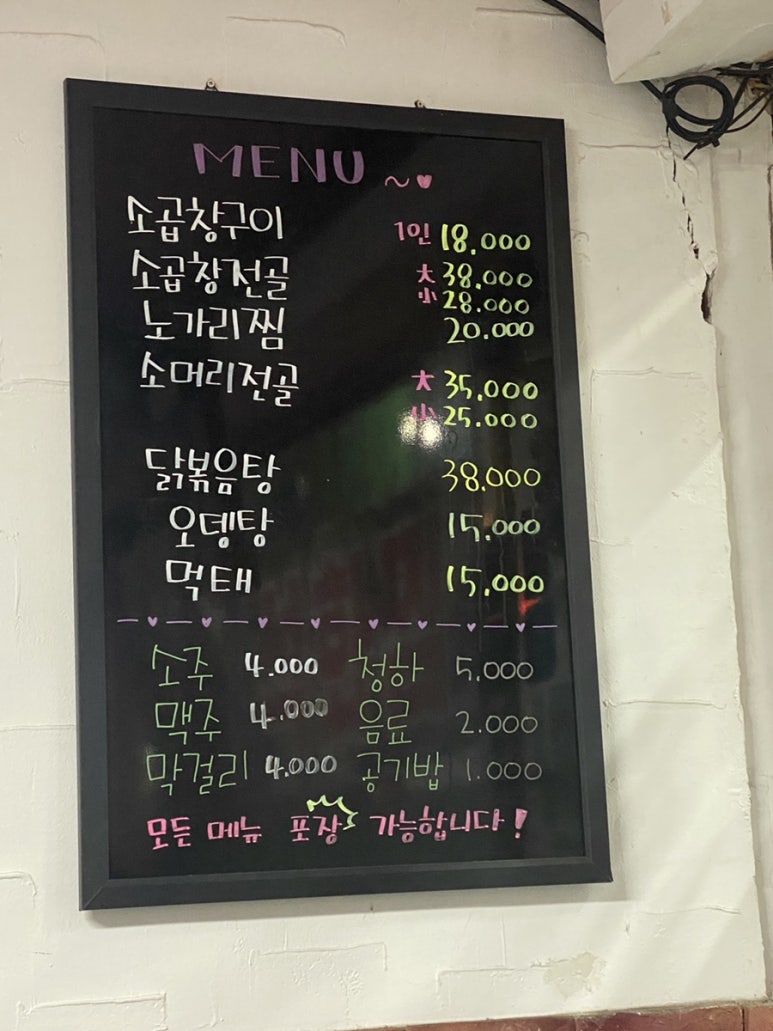 MENU ~
소곱창구이 1인 18.000
소곱창전골 大 38.000
小 28.000
노가리찜 20.000
소머리전골 大 35.000
小 25.000
닭볶음탕 38.000
오뎅탕 15.000
먹태 15.000
소주 4.000 청하 5.000
맥주 4.000 음료 2.000
막걸리 4.000 공기밥 1.000
모든 메뉴 포장 가능합니다!